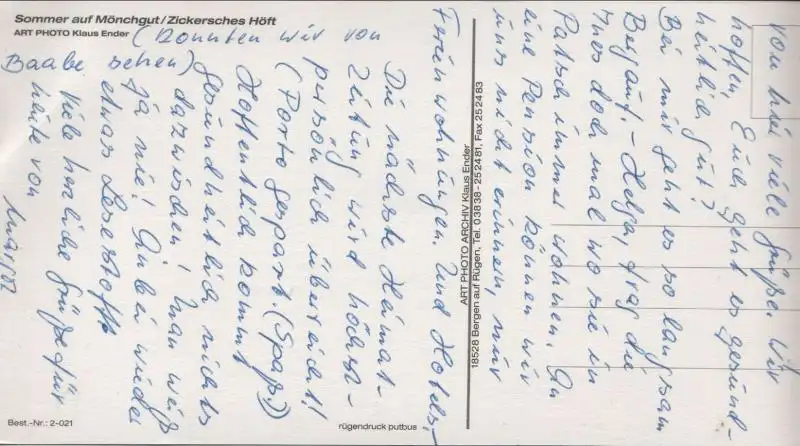 Sommer auf Mönchgut/Zickersches Höft
ART PHOTO Klaus Ender
(Konnten wir von
Baabe sehen)
Von hier viele Grüße. Wir
hoffen, Euch geht es gesund-
heitlich gut?
Bei mir geht es so langsam
Bergauf. - Helga, frag die
Ines doch mal wo sie in
immer wohnen. An
eine Pension können wir
uns nicht erinnern, nur
Ferienwohnungen und Hotels.
Die nächste Heimat-
Zeitung wird höchst-
persönlich überreicht!
(Porto gespart. (Spaß!))
Hoffentlich kommt
gesundheitlich nichts
dazwischen, man weiß
ja nie! Anbei wieder
etwas Lesestoff.
Viele herzliche Grüße für
heute von
ART PHOTO ARCHIV Klaus Ender
18528 Bergen auf Rügen, Tel. 03838-252481, Fax 252483
Best.-Nr.: 2-021
rügendruck putbus